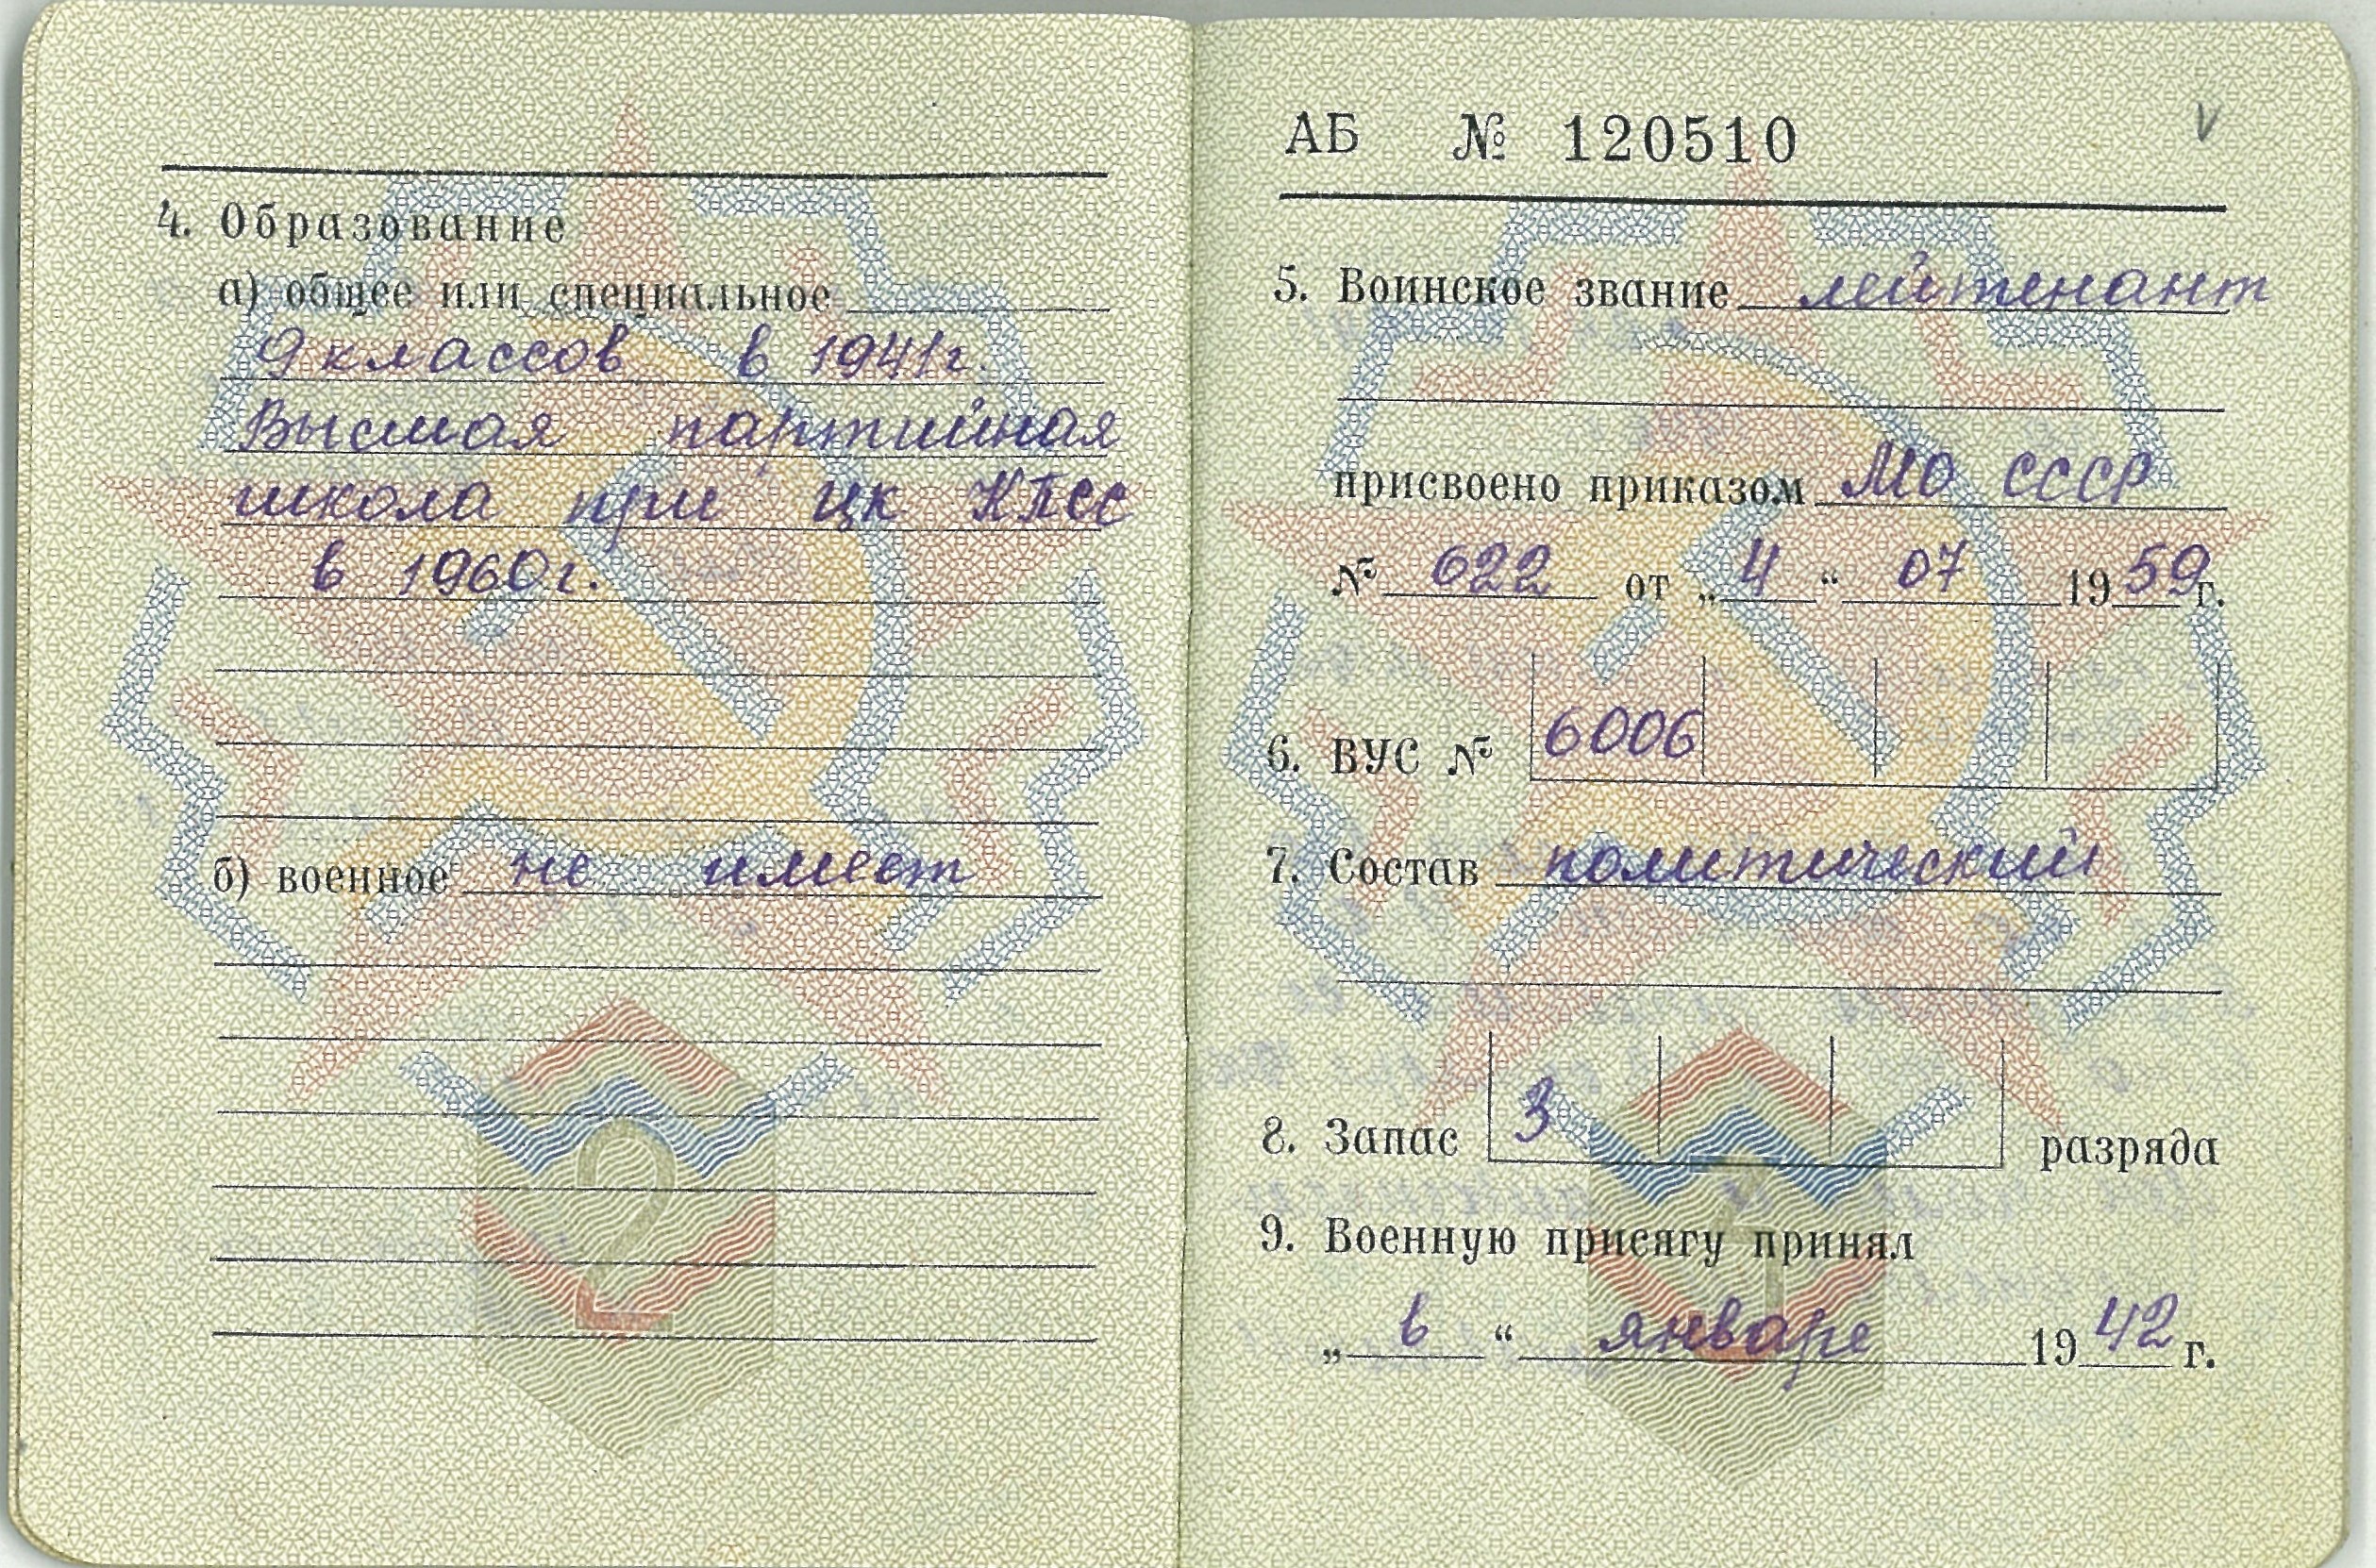 4. Образование
а) общее или специальное
9 классов в 1941г.
Высшая партийная
школа при ЦК КПСС
в 1960г.
б) военное не имеет
2
АБ № 120510
5. Воинское звание лейтенант
присвоено приказом МО СССР
№ 622 от „4“ 07 1959 г.
6. ВУС № 6006
7. Состав политический
8. Запас 3 разряда
9. Военную присягу принял
„ в “ январе 1942 г.